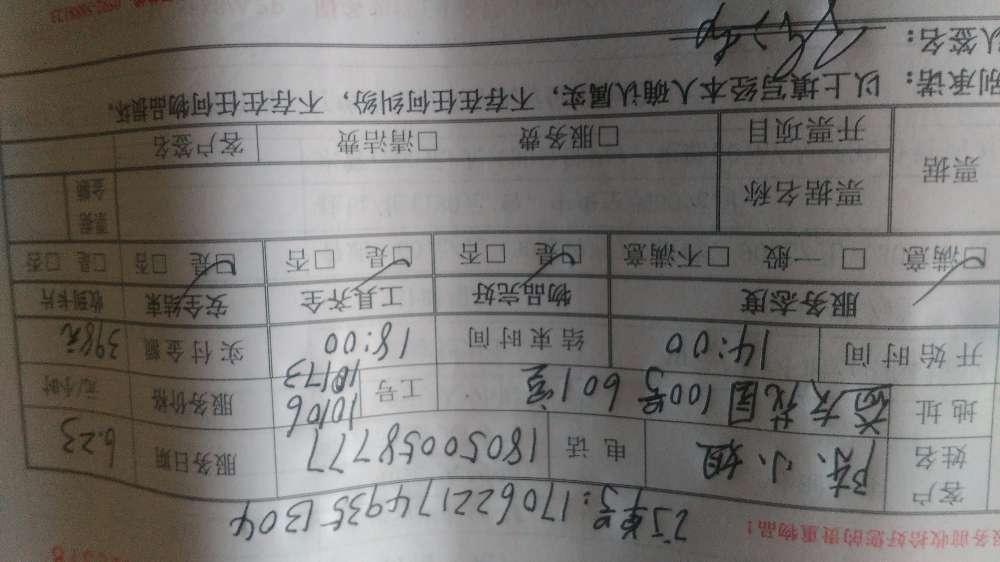 服务前收拾好您的贵重物品！
订单号：17062217493551304
客户姓名 陈小姐 电话 18050058777 服务日期 6.23
地址 花园100号601室 工号 10106 10173 服务价格 元/小时
开始时间 14:00 结束时间 18:00 实付金额 398元
服务态度 物品完好 工具齐全 安全结束 收到卡片
☑满意 □一般 □不满意 ☑是 □否 ☑是 □否 ☑是 □否 □是 □否
票据 票据名称 票据金额
开票项目 □服务费 □清洁费 客户签名
别承诺：以上填写经本人确认属实，不存在任何纠纷，不存在任何物品损坏。
人签名：